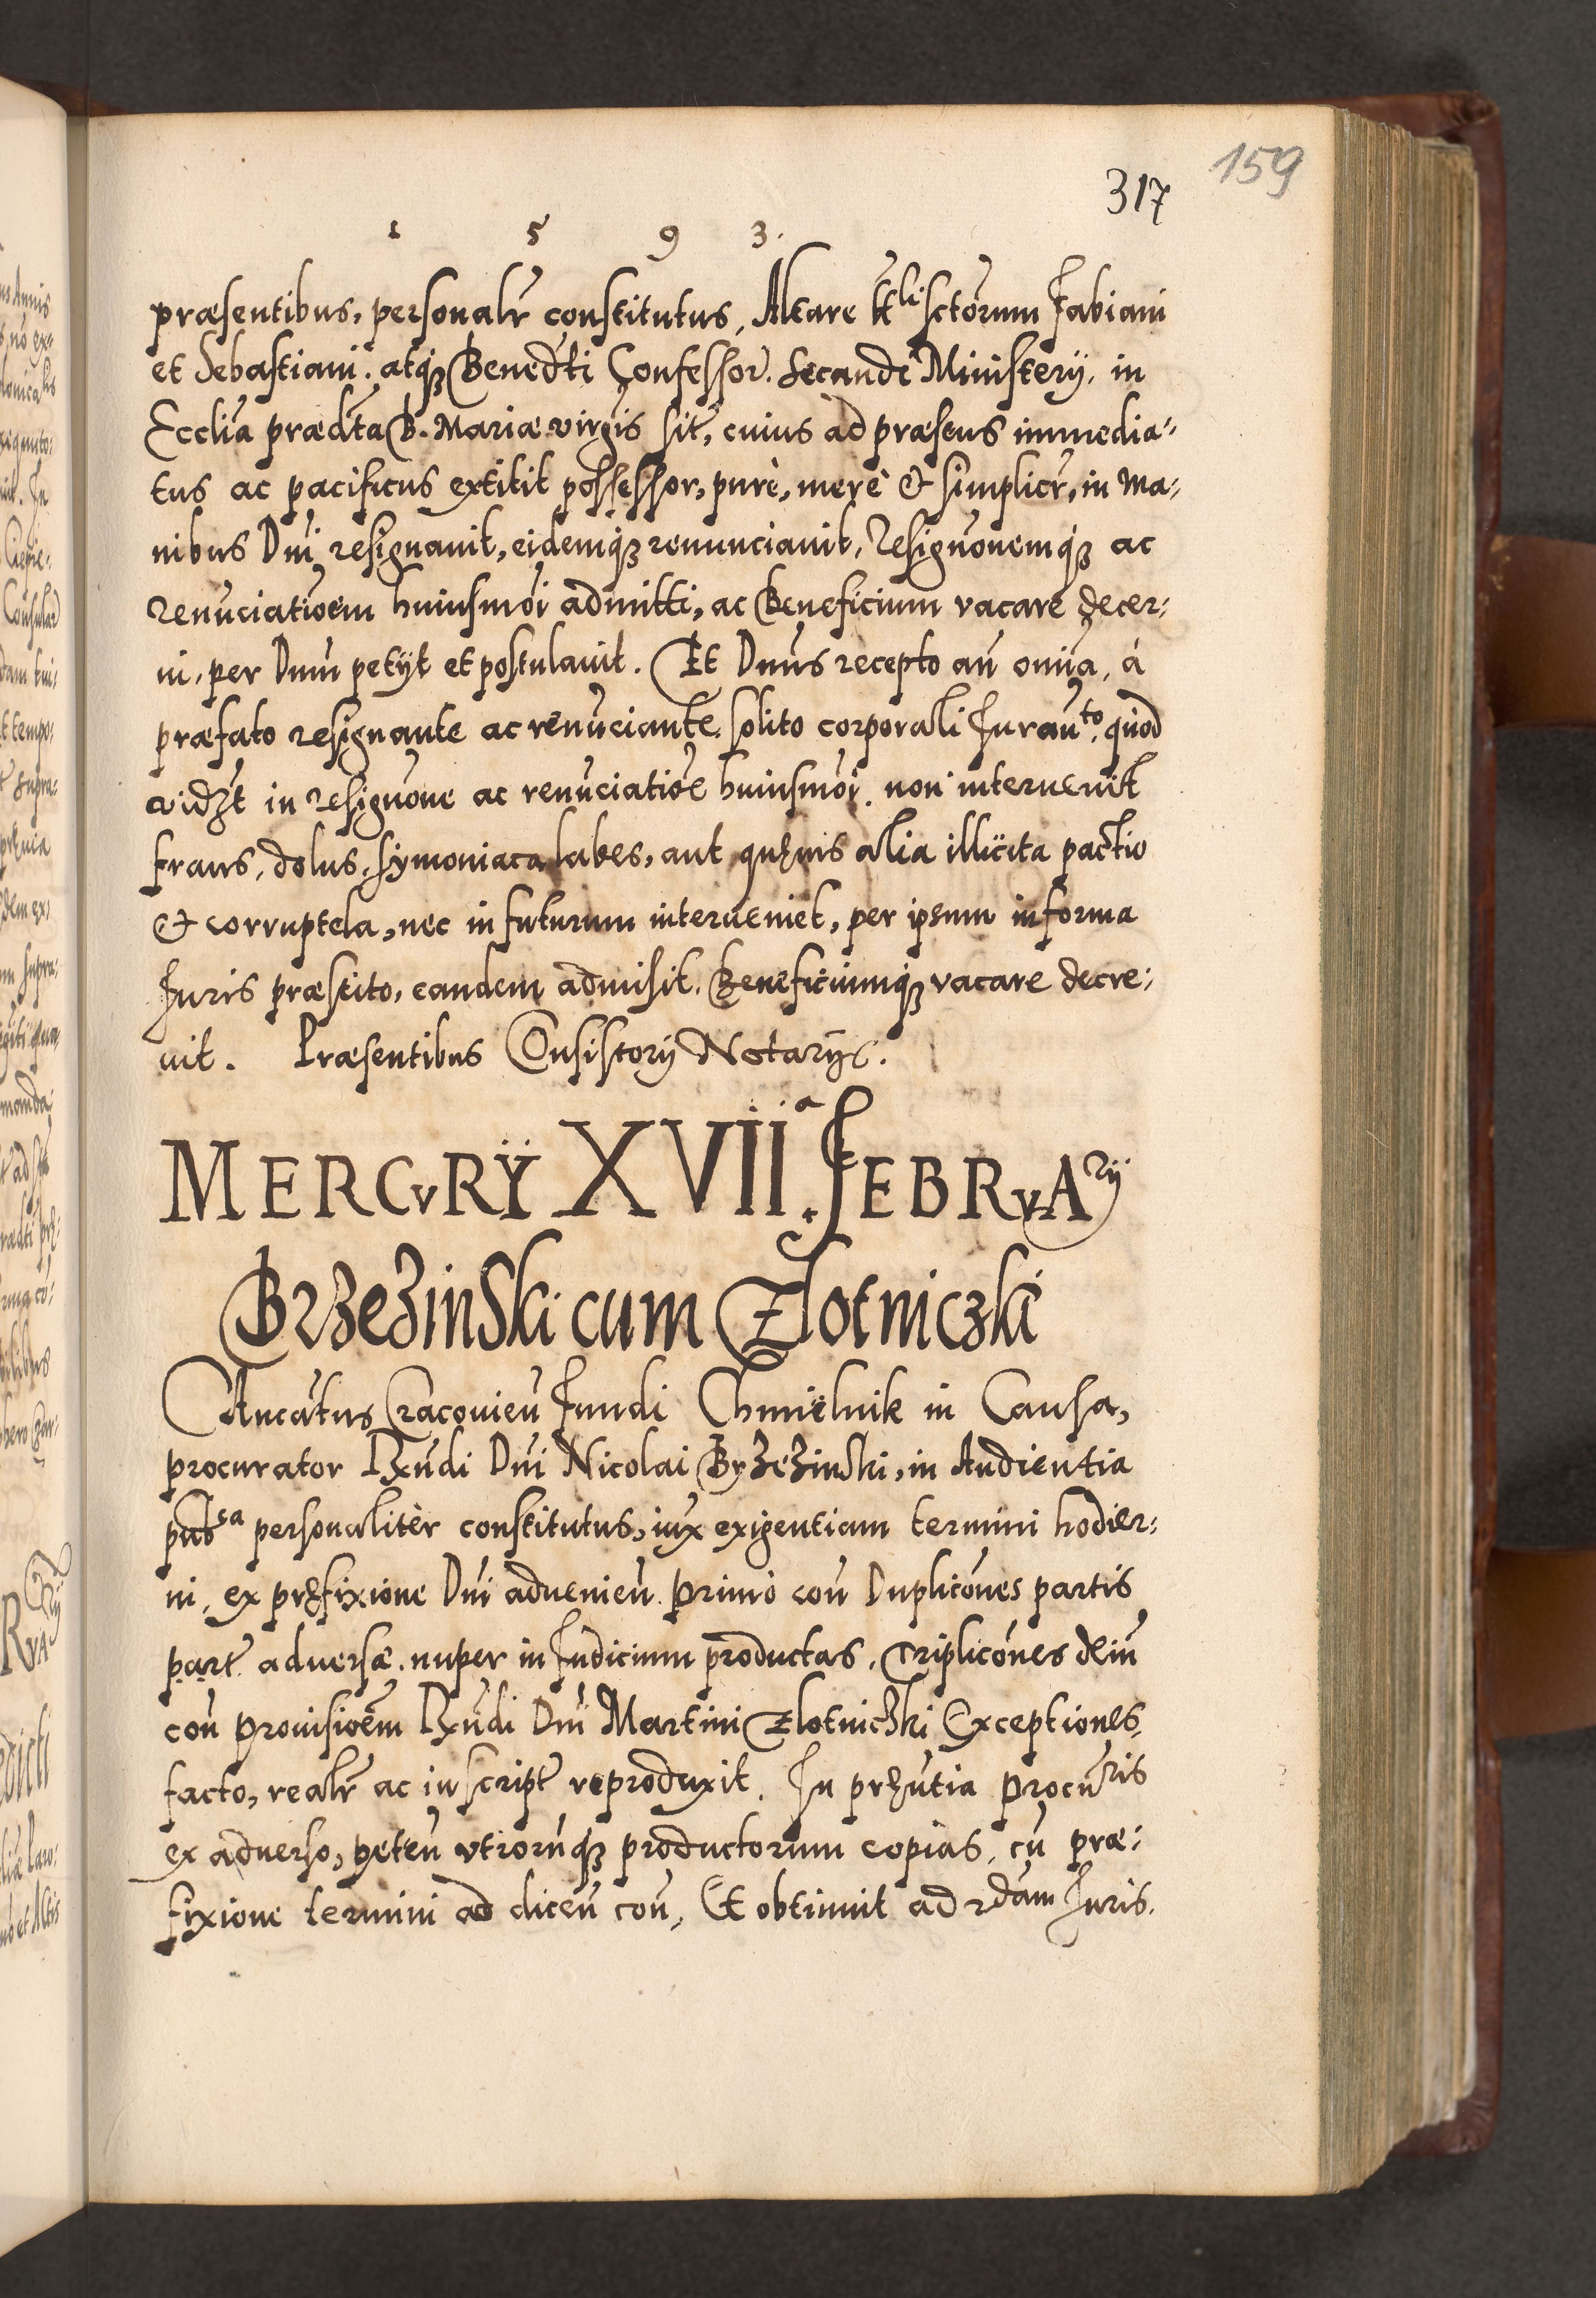 159
317
1 5 9 3.
præsentibus, personalr constitutus, Altare ttli sctorum Fabiani
et Sebastiani. atq3 Benedti Confessor. secundi Ministerÿ, in
Ecclia prædta B. Mariæ virgis sit, cuius ad præsens immedia-
tus ac pacificus extitit possessor, purè, merè & simplicr, in ma-
nibus Dni resignauit, eidemq3 renunciauit, Resignonemq3 ac
renuciatioem huiusmoi admitti, ac Beneficium vacare decer-
ni, per Dnm petÿt et postulauit. Et Dnus recepto an omia, à
præfato resignante ac renuciante solito corporali Juranto. quod
videt in resignone ac renuciatioe huiusmoi non interuenit
fraus, dolus, symoniaca labes, aut queuis alia illicita pactio
& corruptela, nec in futurum interueniet, per ipsum in forma
Juris præstito, eandem admisit. Beneficiumq3 vacare decre-
uit. Præsentibus Consistorÿ Notarÿs.
MERCVRŸ XVIIa. FEBRVARÿ
Brzezinski cum Zlotniczki
Ancutus Cracouien Fundi Chmielnik in Causa,
procurator Rndi Dni Nicolai Brzezinski, in Audientia
pubca personaliter constitutus, iux exigentiam termini hodier-
ni, ex prefixione Dni aduenien. Primo con Duplicones partis
part aduersæ. nuper in Judicium productas, Triplicones dein
con prouisioem Rndi Dni Martini Zlotniczki Exceptiones
facto, realr ac in script reproduxit. In prentia Procuris
ex aduerso, peten vtrorunq3 productorum copias, cu præ-
fixione termini ad dicen con, Et obtinuit ad 2dam Juris.